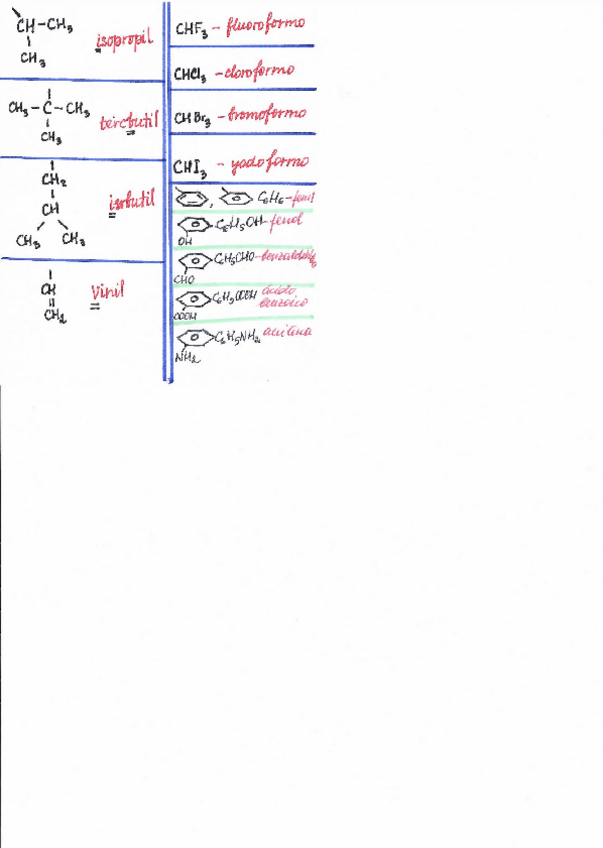 CH-CH₃
CH₃
isopropil
CH₃-C-CH₃
CH₃
tercbutil
CH₂
CH
CH₃ CH₃
isobutil
CH
CH₂
Vinil
CHF₃ - fluoroformo
CHCl₃ - cloroformo
CHBr₃ - bromoformo
CHI₃ - yodoformo
, C₆H₅-fenil
C₆H₅OH-fenol
OH
C₆H₅CHO-benzaldehído
CHO
C₆H₅COOH ácido
benzoico
COOH
C₆H₅NH₂ anilina
NH₂